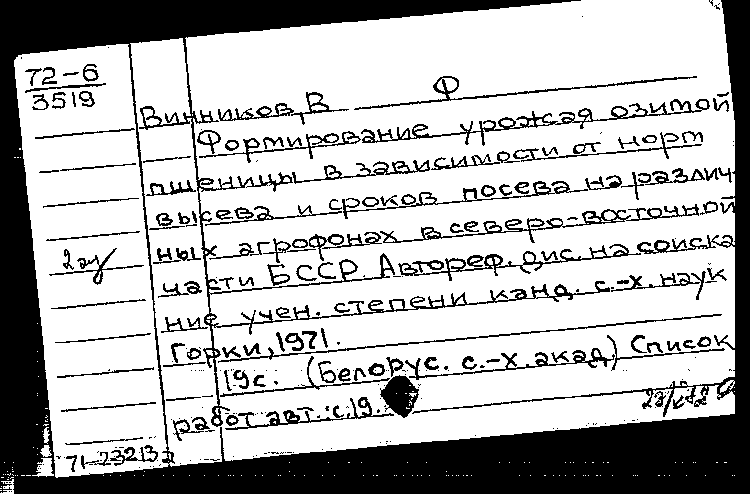 72-6
3519
Винников, В Ф
Формирование урожая озимой
пшеницы в зависимости от норм
высева и сроков посева на различ-
ных агрофонах в северо-восточной
части БССР. Автореф. дис. на соиска
ние учен. степени канд. с.-х. наук
Горки, 1971.
19с. (Белорус. с.-х. акад.) Список
работ авт.: с.19.
2 ау